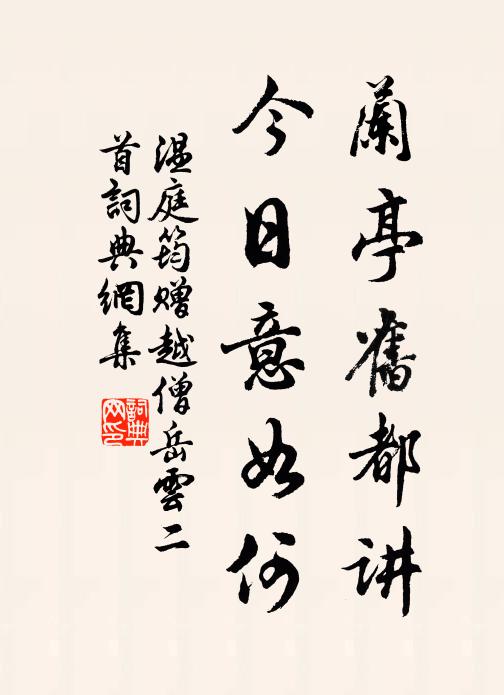 蘭亭舊都講
今日意如何
溫庭筠贈越僧岳雲二
首詞典網集
詞典
网印